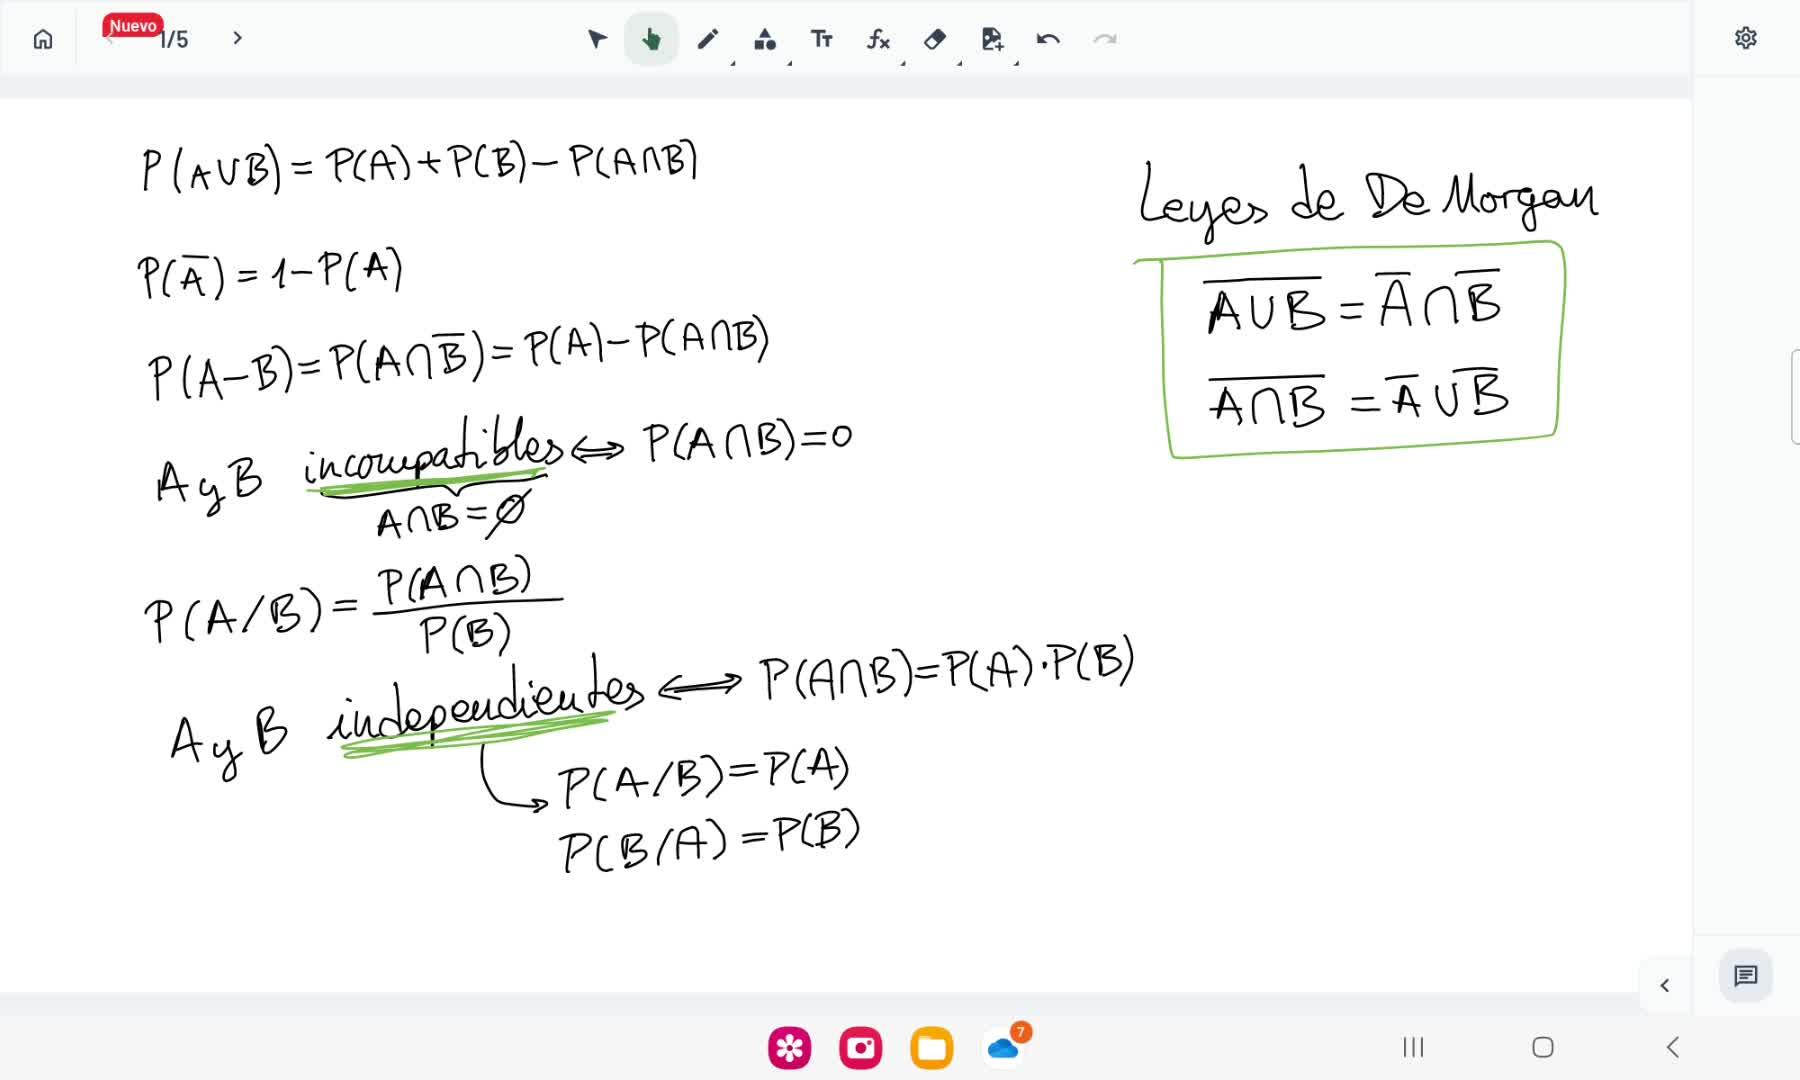 Nuevo
1/5
Tт
fx
P(A∪B) = P(A) + P(B) − P(A∩B)
P(A̅) = 1 − P(A)
P(A−B) = P(A∩B̅) = P(A) − P(A∩B)
A y B incompatibles ⟺ P(A∩B) = 0
A∩B = ∅
P(A/B) = P(A∩B) / P(B)
A y B independientes ⟺ P(A∩B) = P(A)·P(B)
P(A/B) = P(A)
P(B/A) = P(B)
Leyes de De Morgan
A̅∪̅B̅ = A̅ ∩ B̅
A̅∩̅B̅ = A̅ ∪ B̅
7